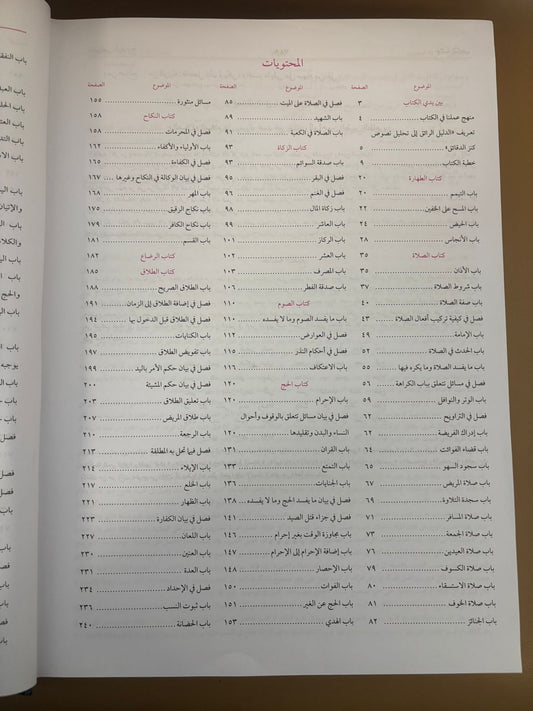 المحتويات
الموضوع الصفحة
بين يدي الكتاب ٣
منهج عملنا في الكتاب ٤
تعريف «الدليل الرائق إلى تحليل نصوص
كنز الدقائق» ٥
خطبة الكتاب ٩
كتاب الطهارة ٢٠
باب التيمم ٢٠
باب المسح على الخفين ٢٢
باب الحيض ٢٤
باب الأنجاس ٢٨
كتاب الصلاة ٣٥
باب الأذان ٣٥
باب شروط الصلاة ٣٧
باب صفة الصلاة ٤٠
فصل في كيفية تركيب أفعال الصلاة ٤٣
باب الإمامة ٤٩
باب الحدث في الصلاة ٥٢
باب ما يفسد الصلاة وما يكره فيها ٥٥
فصل في مسائل تتعلق بباب الكراهة ٥٦
باب الوتر والنوافل ٥٩
فصل في التراويح ٦٢
باب إدراك الفريضة ٦٢
باب قضاء الفوائت ٦٤
باب سجود السهو ٦٥
باب صلاة المريض ٦٧
باب سجدة التلاوة ٦٩
باب صلاة المسافر ٧١
باب صلاة الجمعة ٧٣
باب صلاة العيدين ٧٦
باب صلاة الكسوف ٧٩
باب صلاة الاستسقاء ٨٠
باب صلاة الخوف ٨١
باب الجنائز ٨٢
الموضوع الصفحة
فصل في الصلاة على الميت ٨٥
باب الشهيد ٨٩
باب الصلاة في الكعبة ٩١
كتاب الزكاة ٩٣
باب صدقة السوائم ٩٣
فصل في البقر ٩٥
فصل في الغنم ٩٦
باب زكاة المال ٩٨
باب العاشر ٩٩
باب الركاز ١٠١
باب العشر ١٠٢
باب المصرف ١٠٣
باب صدقة الفطر ١٠٦
كتاب الصوم ١١٠
باب ما يفسد الصوم وما لا يفسده ١١٠
فصل في العوارض ١١٢
فصل في أحكام النذر ١١٥
باب الاعتكاف ١١٦
كتاب الحج ١٢٠
باب الإحرام ١٢٠
فصل في بيان مسائل تتعلق بالوقوف وأحوال
النساء والبدن وتقليدها ١٢٠
باب القران ١٣١
باب التمتع ١٣٣
باب الجنايات ١٣٦
فصل في بيان ما يفسد الحج وما لا يفسده ١٣٨
فصل في جزاء قتل الصيد ١٤١
باب مجاوزة الوقت بغير إحرام ١٤٦
باب إضافة الإحرام إلى الإحرام ١٤٧
باب الإحصار ١٤٨
باب الفوات ١٥٠
باب الحج عن الغير ١٥١
باب الهدي ١٥٣
الموضوع الصفحة
مسائل منثورة ١٥٥
كتاب النكاح ١٥٨
فصل في المحرمات ١٥٨
باب الأولياء والأكفاء ١٦٢
فصل في الكفاءة ١٦٥
فصل في بيان الوكالة في النكاح وغيرها ١٦٧
باب المهر ١٦٨
باب نكاح الرقيق ١٧٥
باب نكاح الكافر ١٧٩
باب القسم ١٨١
كتاب الرضاع ١٨٢
كتاب الطلاق ١٨٥
باب الطلاق الصريح ١٨٨
فصل في إضافة الطلاق إلى الزمان ١٩١
فصل في الطلاق قبل الدخول بها ١٩٤
باب الكنايات ١٩٥
باب تفويض الطلاق ١٩٧
فصل في بيان حكم الأمر باليد ١٩٩
فصل في بيان حكم المشيئة ٢٠٠
باب تعليق الطلاق ٢٠٣
باب طلاق المريض ٢٠٧
باب الرجعة ٢١٠
فصل فيما تحل به المطلقة ٢١٣
باب الإيلاء ٢١٤
باب الخلع ٢١٧
باب الظهار ٢٢١
فصل في بيان الكفارة ٢٢٣
باب اللعان ٢٢٧
باب العنين ٢٣٠
باب العدة ٢٣١
فصل في الإحداد ٢٣٤
باب ثبوت النسب ٢٣٦
باب الحضانة ٢٤٠